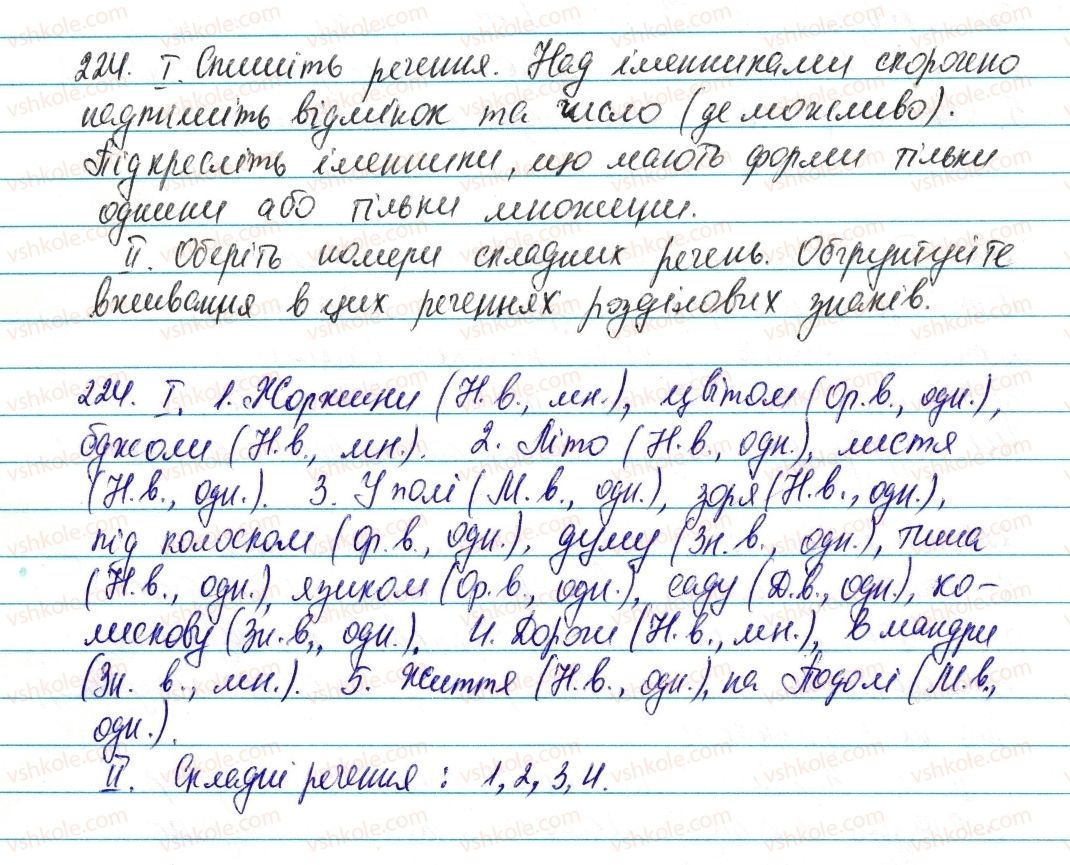 224. I. Спишіть речення. Над іменниками скорочено
надпишіть відмінок та число (де можливо).
Підкресліть іменники, що мають форми тільки
однини або тільки множини.
II. Оберіть номери складних речень. Обґрунтуйте
вживання в цих реченнях розділових знаків.
224. I. 1. Жоржини (Н.в., мн.), цвітом (Ор.в., одн.),
бджоли (Н.в., мн.). 2. Літо (Н.в., одн.), листя
(Н.в., одн.). 3. У полі (М.в., одн.), зоря (Н.в., одн.),
під колоском (Ор.в., одн.), думу (Зн.в., одн.), тиша
(Н.в., одн.), язиком (Ор.в., одн.), саду (Д.в., одн.), ко-
лискову (Зн.в., одн.). 4. Дороги (Н.в., мн.), в мандри
(Зн. в., мн.). 5. Життя (Н.в., одн.), на Подолі (М.в.,
одн.).
II. Складні речення: 1, 2, 3, 4.